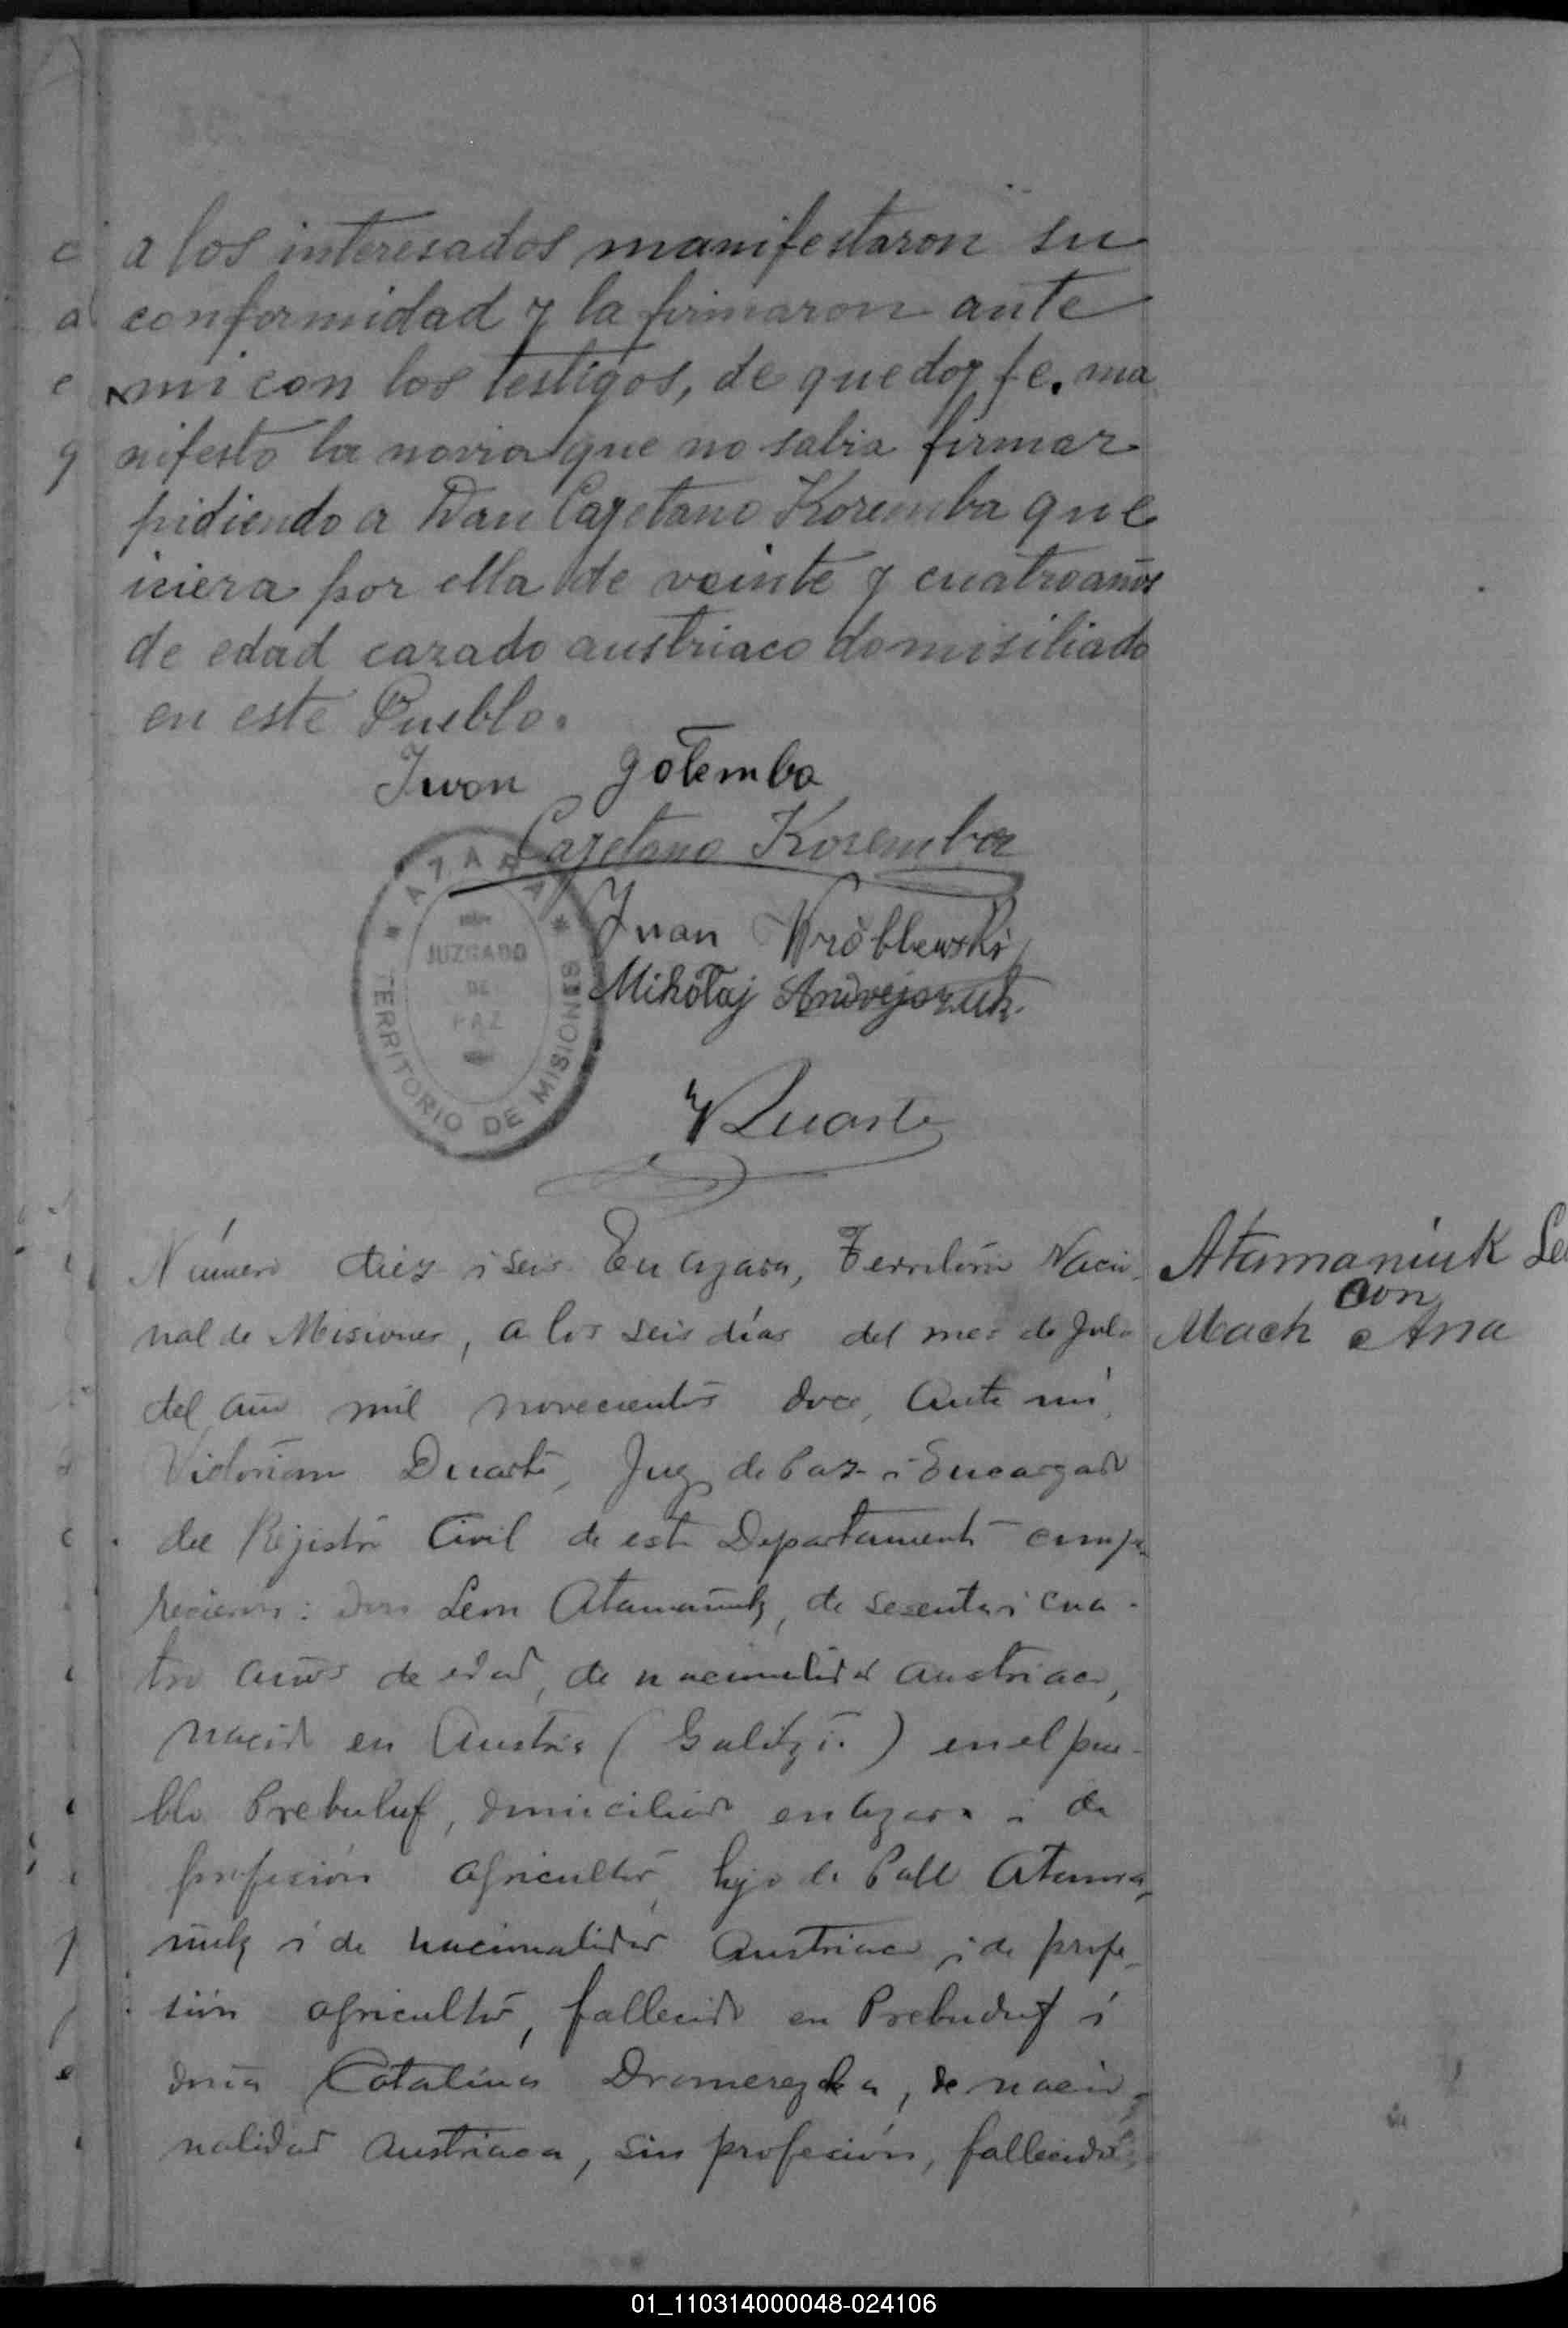 a los interesados manifestaron su
conformidad y la firmaron ante
mi con los testigos, de que doy fe. ma
nifesto la novia que no sabia firmar
pidiendo a Dan Cajetano Koremba que
iciera por ella de veinte y cuatro años
de edad cazado austriaco domisiliado
en este Pueblo.
Iwon Gotemba
Cajetano Koremba
Juan Wróblewski
Mikołaj
VDuarte
AZARA
JUZGADO
DE
PAZ
TERRITORIO DE MISIONES
Número diez i seis En Azara, Territorio Nacio-
nal de Misiones, a los seis días del mes de Julio
del año mil novecientos doce, Ante mí,
Victoriano Duarte, Juez de Paz i Encargado
del Rejistro Civil de este Departamento compa-
recieron: don Leon Atamañuk, de sesenta i cua-
tro años de edad, de nacionalidad austriaco,
nacido en Austria (Galitzia) en el pue-
blo Prebuluf, domiciliado en Azara i de
profesión agricultor, hijo de Atama-
ñuk i de nacionalidad Austriaco i de profe-
sión agricultor, fallecido en i
doña Catalina, de nacio-
nalidad Austriaca, sin profesión, fallecida
Atamaniuk
con
Mach Ana
01_110314000048-024106